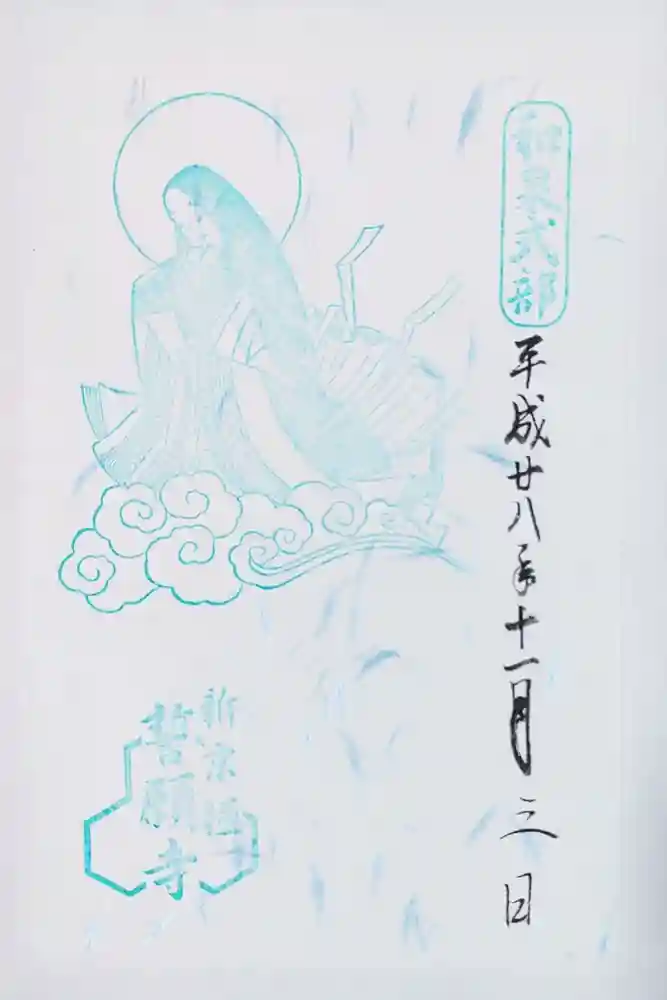 和泉式部
平成廿八年十一月三日
新京極
誓願寺